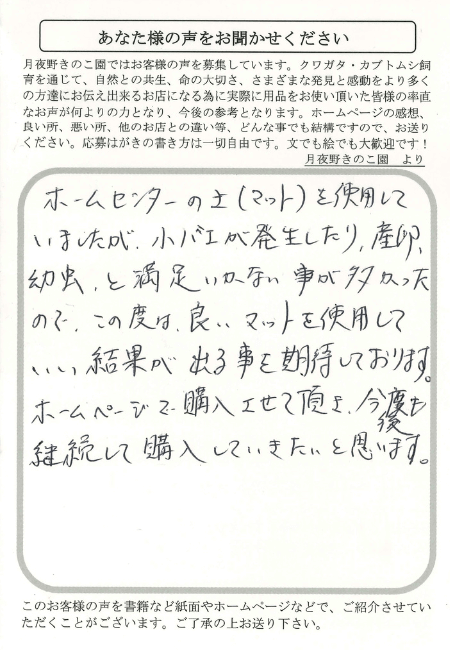 あなた様の声をお聞かせください
月夜野きのこ園ではお客様の声を募集しています。クワガタ・カブトムシ飼
育を通じて、自然との共生、命の大切さ、さまざまな発見と感動をより多く
の方達にお伝え出来るお店になる為に実際に用品をお使い頂いた皆様の率直
なお声が何よりの力となり、今後の参考となります。ホームページの感想、
良い所、悪い所、他のお店との違い等、どんな事でも結構ですので、お送り
ください。応募はがきの書き方は一切自由です。文でも絵でも大歓迎です！
月夜野きのこ園　より
ホームセンターの土(マット)を使用して
いましたが、小バエが発生したり、産卵、
幼虫、と満足いかない事が多かった
ので、この度は、良いマットを使用して
いい結果が出る事を期待しております。
ホームページで購入させて頂き、今後も
継続して購入していきたいと思います。
このお客様の声を書籍など紙面やホームページなどで、ご紹介させてい
ただくことがございます。ご了承の上お送り下さい。